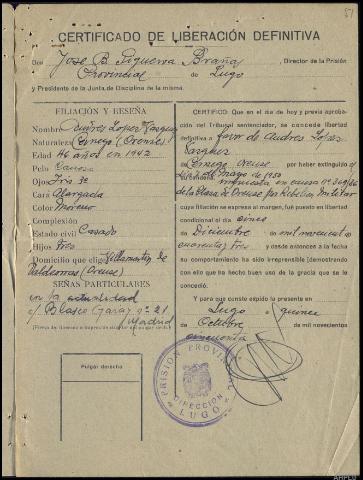 57
CERTIFICADO DE LIBERACIÓN DEFINITIVA
Don Jose B. Figueroa Braña, Director de la Prisión
Provincial de Lugo
y Presidente de la Junta de Disciplina de la misma.
FILIACIÓN Y RESEÑA
Nombre Andres Lopez Vazquez
Naturaleza (Orense)
Edad 46 años en 1942
Pelo
Ojos
Cara Alargada
Color Moreno
Complexión
Estado civil Casado
Hijos tres
Domicilio que eligió Villamartin de
Valdeorras (Orense)
SEÑAS PARTICULARES
en la actualidad
c/ Blasco Garay nº 21
Madrid
Pulgar derecho
CERTIFICO: Que en el día de hoy y previa aproba-
ción del Tribunal sentenciador, se concede libertad
definitiva a favor de Andres Lopez
Vazquez
de Orense por haber extinguido el
de Mayo de 1950
impuesta en causa nº
de la Plaza de Orense por Rebelion Militar
cuya filiación se expresa al margen, fué puesto en libertad
condicional el día cinco
de Diciembre de mil novecientos
cuarenta y tres y desde entonces a la fecha
su comportamiento ha sido irreprensible (demostrando
con ello que ha hecho buen uso de la gracia que se le
concedió.
Y para que conste expido la presente en
Lugo a quince
de Octubre de mil novecientos
cincuenta
PRISION PROVINCIAL
DIRECCION
LUGO
AHPLU